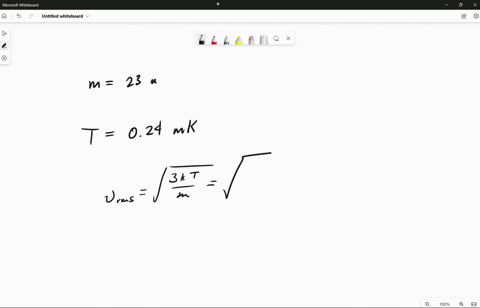 Microsoft Whiteboard
Untitled whiteboard
m = 23 u
T = 0.24 mK
v_rms = √(3kT/m) = √
100%